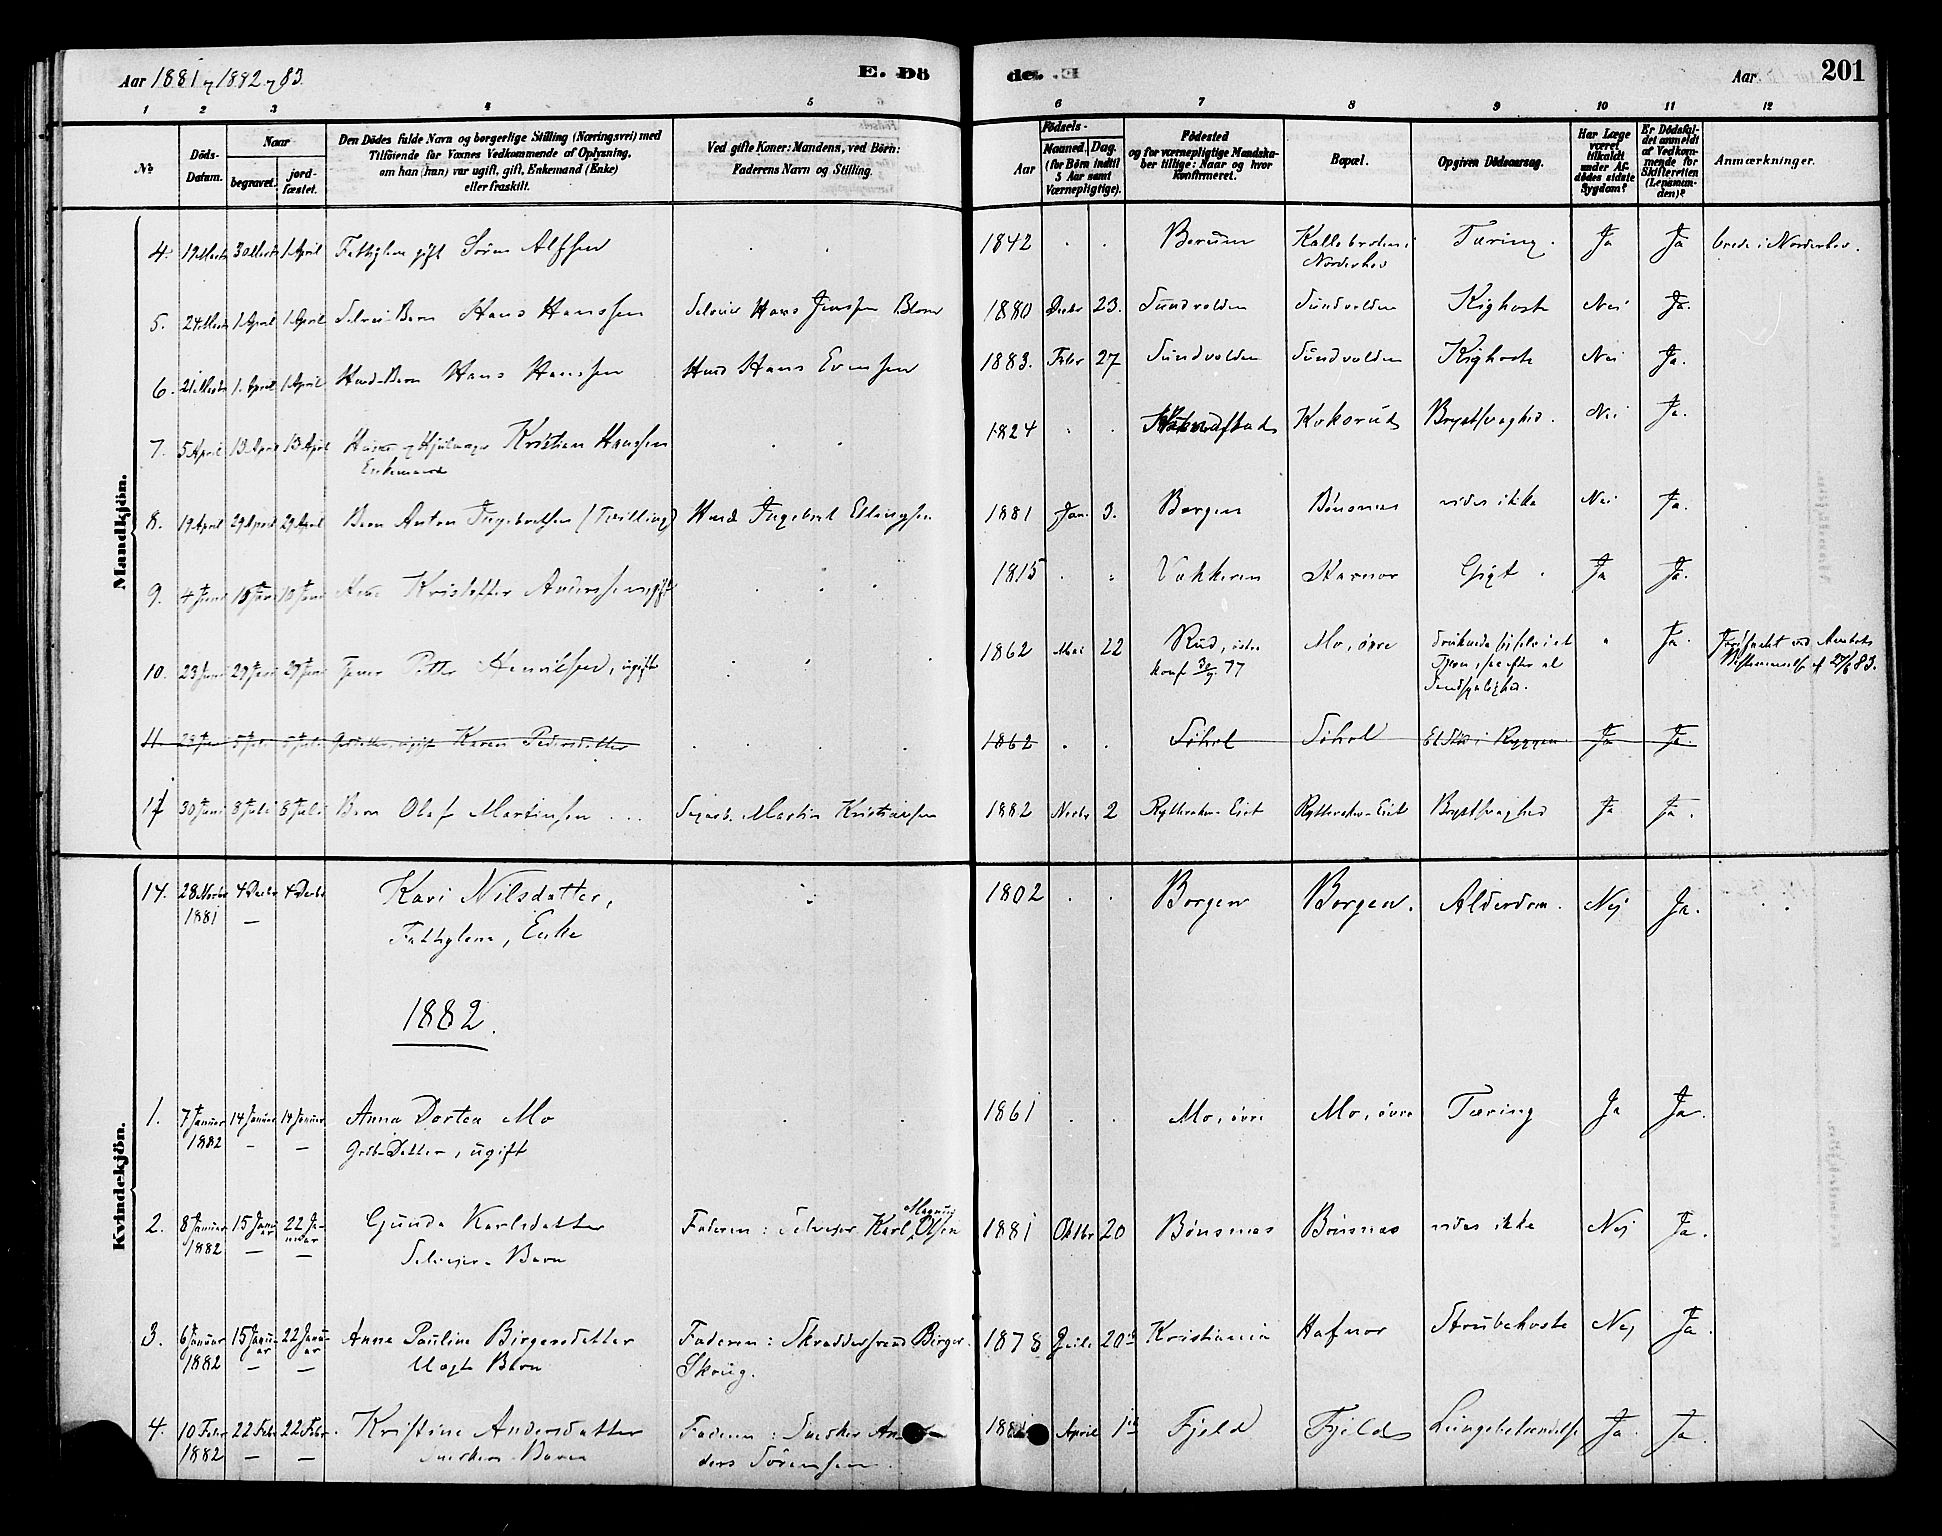 Aar 1881 og 1882 og 83.
E. Dö
de. E
Aar
201
1 2 3 4 5 6 7 8 9 10 11 12
No
Döds-Datum.
Naar
begravet.
jord-fæstet.
Den Dödes fulde Navn og borgerlige Stilling (Næringsvei) med
Tilföiende for Voxnes Vedkommende af Oplysning,
om han (hun) var ugift, gift, Enkemand (Enke)
eller fraskilt.
Ved gifte Koner: Mandens, ved Börn:
Faderens Navn og Stilling.
Födsels-
Aar
Maaned. Dag.
(for Börn indtil
5 Aar samt
Værnepligtige).
Födested
og for værnepligtige Mandska-
ber tillige: Naar og hvor
konfirmeret.
Bopæl.
Opgiven Dödsaarsag.
Har Læge
været
tilkaldt
under Af-
dödes sidste
Sygdom?
Er Dödsfal-
det anmeldt
af Vedkom-
mende for
Skifteretten
(Lensman-
den)?
Anmærkninger.
Mandkjön.
4. 19 Marts 30 Marts 1 April Fattiglem gift Søren Alfsen 1842 Bærum Kallebråten i Norderhov Tæring. Ja Ja i Norderhov.
5. 24 Marts 1 April 1 April Selveier-Barn Hans Hanssen Selveier Hans Jenssen Blom 1880 Decbr 23. Sundvolden Sundvolden Kighoste Nei Ja.
6. 21 Marts 1. April 1 April Husm-Barn Hans Hanssen Husm Hans Evensen 1883. Febr 27 Sundvolden Sundvolden Kighoste Nei Ja.
7. 5 April 13 April 13 April og Hjulmager Kristian Hanssen
Enkemand 1824 Kokerud Brystsvaghed. Nei Ja.
8. 19 April 29 April 29 April Barn Anton Ingebretsen (Tvilling) Husm Ingebret Ellingsen 1881 Jan. 3. Borgen Bönsnes vides ikke Nei Ja.
9. 4 Juni 10 Juni 10 Juni Kristoffer Anderssen, gift 1815 Vækkeren Gigt. Ja Ja.
10. 23 Juni 29 Juni 29 Juni Petter Henriksen, ugift 1862 Mai 22 Rud, östre
konf 77 Mo, övre i et
Tjern, efter al
Sandsynlighed. Ja 83.
11. 5 Juli 5 Juli ugift Karen Pedersdatter 1862 Söhol Söhol Et Stöd i Ryggen Ja Ja.
30 Juni 8 Juli 8 Juli Barn Olaf Martinsen Martin Kristiansen 1882 Novbr 2 Rytteraker-Eiet Rytteraker-Eiet Brystsvaghed Ja Ja.
Kvindekjön.
14. 28 Novbr 1881 4 Decbr 4 Decbr Kari Nilsdatter,
Fattiglem, Enke 1802 Borgen Borgen. Alderdom. Nej Ja.
1882.
1. 7 Januar 1882 14 Januar 14 Januar Anna Dortea Mo
Grdb-Datter, ugift 1861 Mo, övre Mo, övre Tæring Ja Ja.
2. 8 Januar 1882 15 Januar 22 Januar Gunda Karlsdatter
Selvejer-Barn Faderen: Selvejer Karl Magnus Olsen 1881 Oktbr 20 Bönsnæs Bönsnæs vides ikke Nej Ja.
3. 6 Januar 1882 15 Januar 22 Januar Anna Pauline Birgersdatter
Uægte Barn Faderen: Skräddersvend Birger
Skrüg. 1878 20de Kristiania Hafnor Strubehoste Nej Ja.
4. 10 Febr 1882 22 Febr 22 Febr. Kristine Andersdatter
Snekker-Barn Faderen: Snekker An-
ders Sörensen. April 1ste Fjeld Fjeld Lungebetændelse Ja Ja.